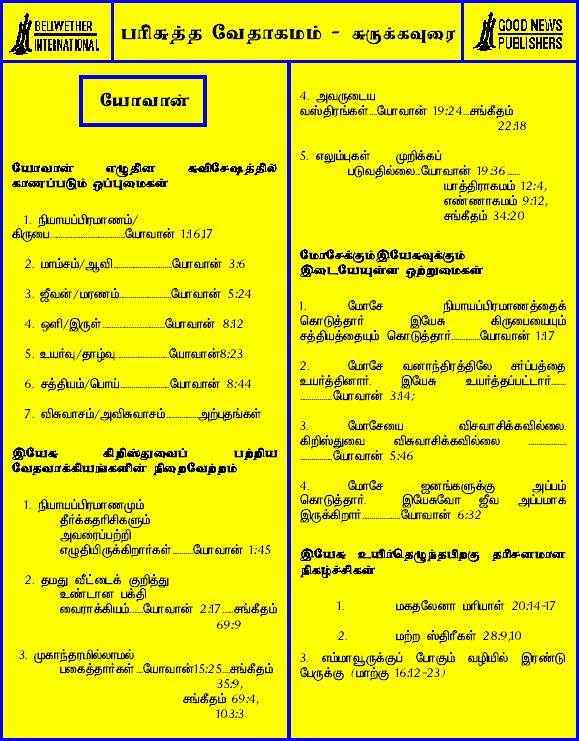 BELLWETHER
INTERNATIONAL
பரிசுத்த வேதாகமம் - சுருக்கவுரை
GOOD NEWS
PUBLISHERS
யோவான்
யோவான் எழுதின சுவிசேஷத்தில்
காணப்படும் ஒப்புமைகள்
1. நியாயப்பிரமாணம்/
கிருபை....................................யோவான் 1:16,17
2. மாம்சம்/ஆவி............................யோவான் 3:6
3. ஜீவன்/மரணம்.........................யோவான் 5:24
4. ஒளி/இருள்...............................யோவான் 8:12
5. உயர்வு/தாழ்வு..........................யோவான்8:23
6. சத்தியம்/பொய்........................யோவான் 8:44
7. விசுவாசம்/அவிசுவாசம்...............அற்புதங்கள்
இயேசு கிறிஸ்துவைப் பற்றிய
வேதவாக்கியங்களின் நிறைவேற்றம்
1. நியாயப்பிரமாணமும்
தீர்க்கதரிசிகளும்
அவரைப்பற்றி
எழுதியிருக்கிறார்கள்..........யோவான் 1:45
2. தமது வீட்டைக் குறித்து
உண்டான பக்தி
வைராக்கியம்......யோவான் 2:17.....சங்கீதம்
69:9
3. முகாந்தரமில்லாமல்
பகைத்தார்கள்...யோவான்15:25...சங்கீதம்
35:9,
சங்கீதம் 69:4,
103:3
4. அவருடைய
வஸ்திரங்கள்...யோவான் 19:24...சங்கீதம்
22:18
5. எலும்புகள் முறிக்கப்
படுவதில்லை..யோவான் 19:36.......
யாத்திராகமம் 12:4,
எண்ணாகமம் 9:12,
சங்கீதம் 34:20
மோசேக்கும்இயேசுவுக்கும்
இடையேயுள்ள ஒற்றுமைகள்
1. மோசே நியாயப்பிரமாணத்தைக்
கொடுத்தார் இயேசு கிருபையையும்
சத்தியத்தையும் கொடுத்தார்.............யோவான் 1:17
2. மோசே வனாந்திரத்திலே சர்ப்பத்தை
உயர்த்தினார். இயேசு உயர்த்தப்பட்டார்.......
................யோவான் 3:14;
3. மோசேயை விசவாசிக்கவில்லை.
கிறிஸ்துவை விசுவாசிக்கவில்லை ...................
................யோவான் 5:46
4. மோசே ஜனங்களுக்கு அப்பம்
கொடுத்தார். இயேசுவோ ஜீவ அப்பமாக
இருக்கிறார்...................யோவான் 6:32
இயேசு உயிர்தெழுந்தபிறகு தரிசனமான
நிகழ்ச்சிகள்
1. மகதலேனா மரியாள் 20:14-17
2. மற்ற ஸ்திரீகள் 28:9,10
3. எம்மாவூருக்குப் போகும் வழியில் இரண்டு
பேருக்கு (மாற்கு 16:12-23)